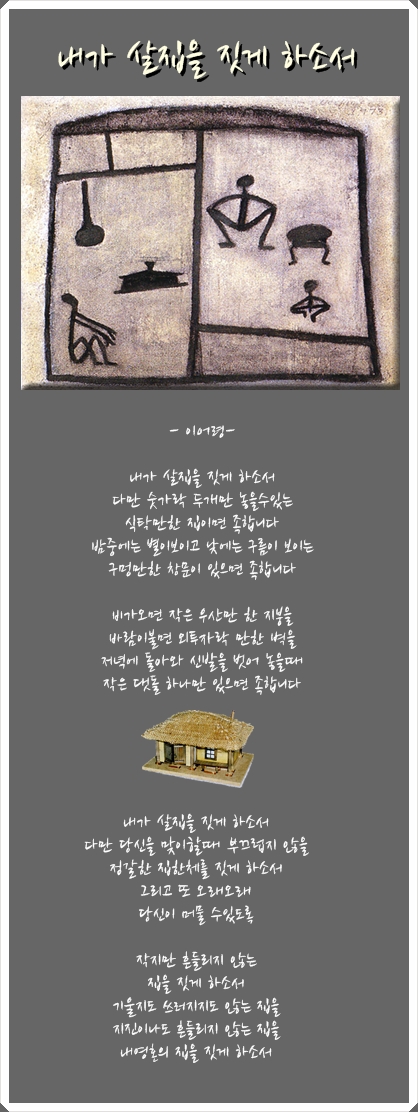 내가 살집을 짓게 하소서
- 이어령-
내가 살집을 짓게 하소서
다만 숫가락 두개만 놓을수있는
식탁만한 집이면 족합니다
밤중에는 별이보이고 낮에는 구름이 보이는
구멍만한 창문이 있으면 족합니다
비가오면 작은 우산만 한 지붕을
바람이불면 외투자락 만한 벽을
저녁에 돌아와 신발을 벗어 놓을때
작은 댓돌 하나만 있으면 족합니다
내가 살집을 짓게 하소서
다만 당신을 맞이할때 부끄럽지 않을
정갈한 집한체를 짓게 하소서
그리고 또 오래오래
당신이 머물 수있도록
작지만 흔들리지 않는
집을 짓게 하소서
기울지도 쓰러지지도 않는 집을
지진이나도 흔들리지 않는 집을
내영혼의 집을 짓게 하소서